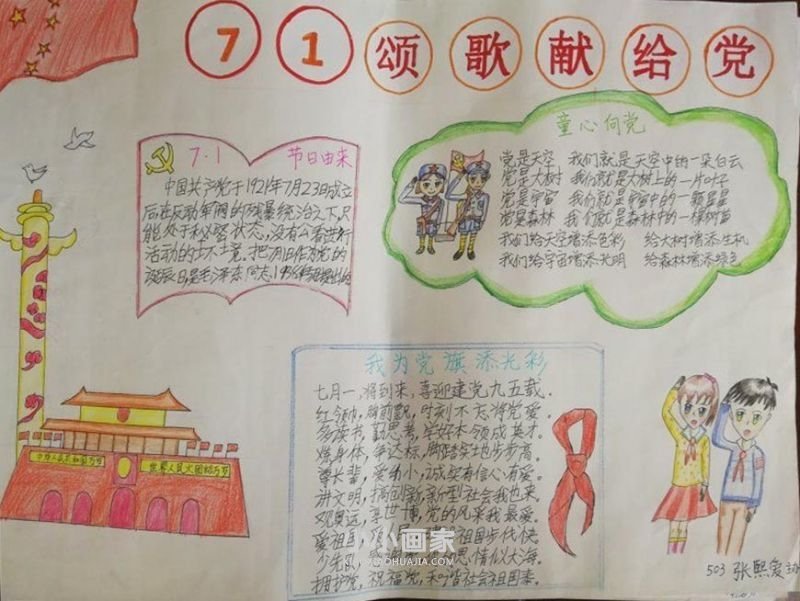 71颂歌献给党
7.1 节日由来
中国共产党于1921年7月23日成立
后在反动军阀的残暴统治之下,只
能处于秘密状态,没有公开进行
活动的环境。把7月1日作为党的
诞辰日,是毛泽东同志
童心向党
党是天空 我们就是天空中的一朵白云
党是大树 我们就是大树上的一片叶子
党是宇宙 我们就是宇宙中的一颗星星
党是森林 我们就是森林中的一棵树苗
我们给天空增添色彩 给大树增添生机
我们给宇宙增添光明 给森林增添绿色
我为党旗添光彩
七月一,将到来,喜迎建党九五载。
红领巾,胸前飘,时刻不忘将党爱。
多读书,勤思考,学好本领成英才。
增身体,争达标,脚踏实地步步高。
尊长辈,爱幼小,诚实有信心有爱。
讲文明,搞创新,新型社会我也来。
观奥运,享世博,党的风采我最爱。
爱祖国
祖国步伐快
少先队
恩情似大海
拥护党,祝福党,和谐社会祖国泰。
中华人民共和国万岁
世界人民大团结万岁
小小画家
503 张熙爱